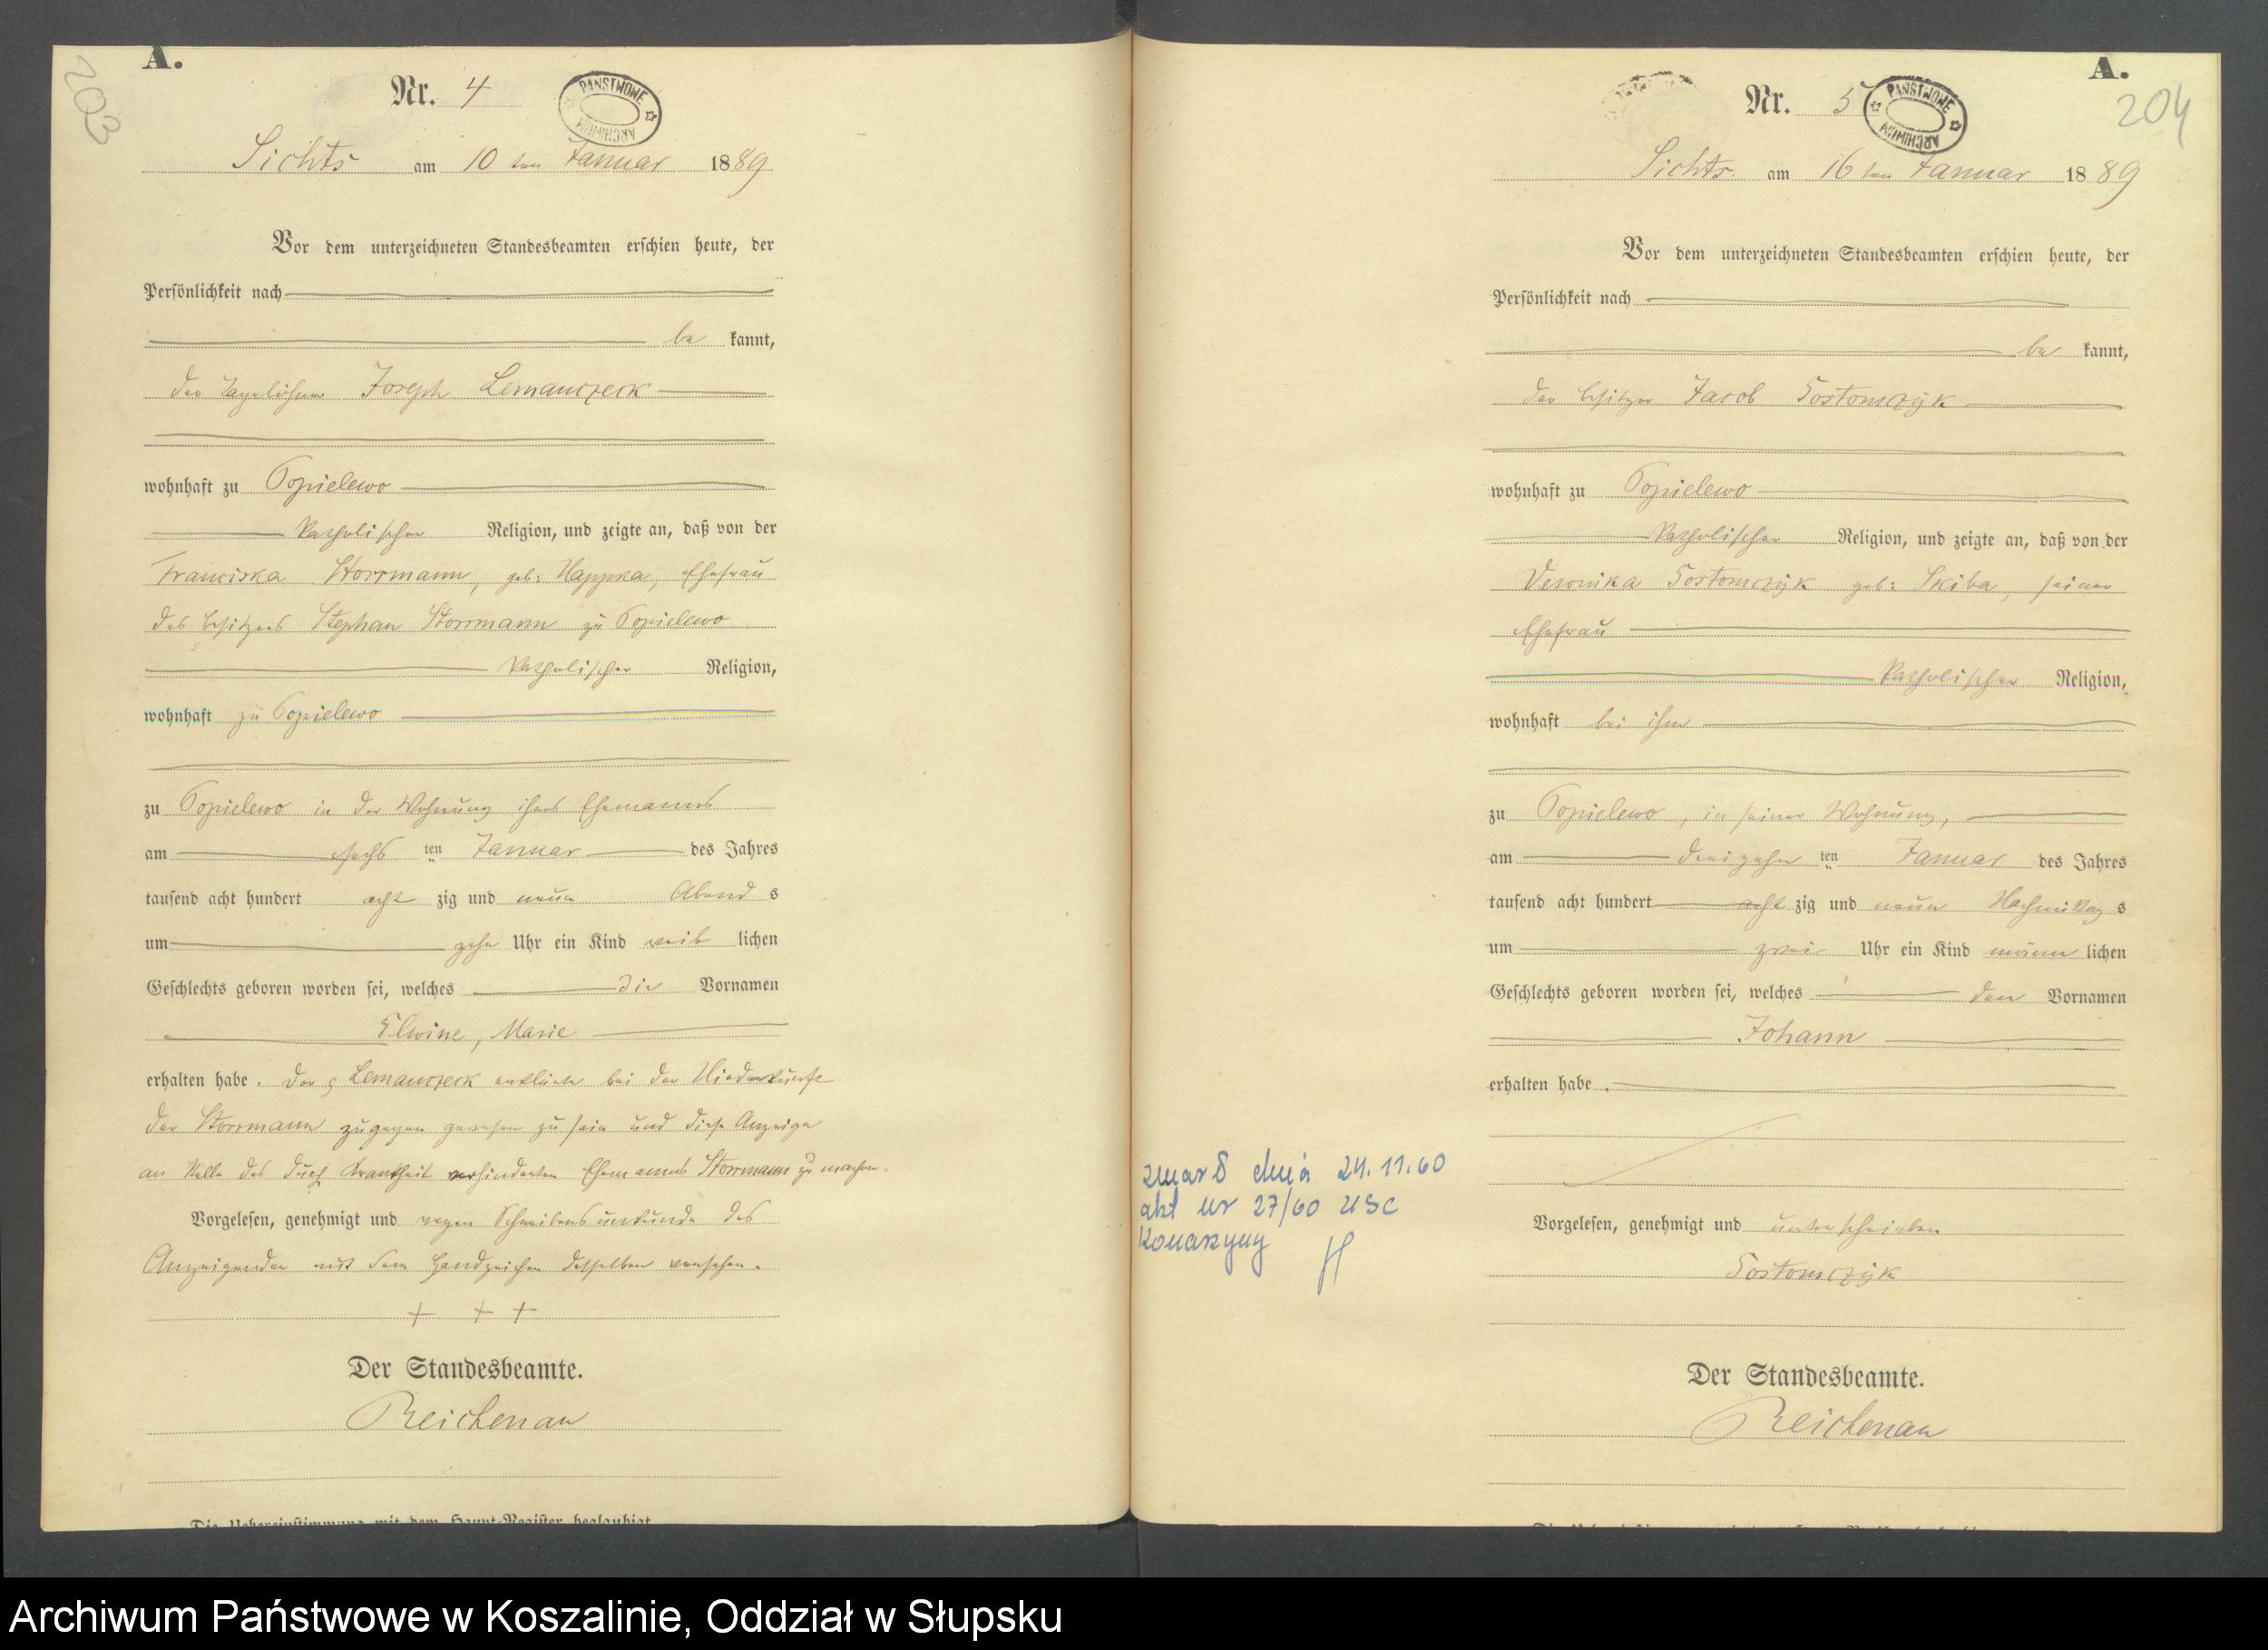 203
A.
Nr. 4
PAŃSTWOWE ARCHIWUM
Sichts am 10ten Januar 1889
Vor dem unterzeichneten Standesbeamten erschien heute, der
Persönlichkeit nach
be kannt,
der Tagelöhner Joseph Lemanczeck
wohnhaft zu Popielewo
katholischer Religion, und zeigte an, daß von der
Franciska Storrmann, geb: Happka, Ehefrau
des Besitzers Stephan Storrmann zu Popielewo
katholischer Religion,
wohnhaft zu Popielewo
zu Popielewo in der Wohnung ihres Ehemanns
am sechs ten Januar des Jahres
tausend acht hundert acht zig und neun Abend s
um zehn Uhr ein Kind weib lichen
Geschlechts geboren worden sei, welches die Vornamen
Elwine, Marie
erhalten habe. Der Lemanczeck erklärte bei der Niederkunft
der Storrmann zugegen gewesen zu sein und diese Anzeige
an Stelle des durch Krankheit verhinderten Ehemanns Storrmann zu machen.
Vorgelesen, genehmigt und wegen Schreibensunkunde des
Anzeigenden mit dem Handzeichen desselben versehen.
+ + +
Der Standesbeamte.
Reichenau
Die Uebereinstimmung mit dem Haupt-Register beglaubigt
A.
204
Nr. 5
PAŃSTWOWE ARCHIWUM
Sichts am 16ten Januar 1889
Vor dem unterzeichneten Standesbeamten erschien heute, der
Persönlichkeit nach
be kannt,
der Besitzer Jacob Sostomczyk
wohnhaft zu Popielewo
katholischer Religion, und zeigte an, daß von der
Veronika Sostomczyk geb: Skiba, seiner
Ehefrau
katholischer Religion,
wohnhaft bei ihm
zu Popielewo, in seiner Wohnung,
am dreizehn ten Januar des Jahres
tausend acht hundert acht zig und neun Nachmittag s
um zwei Uhr ein Kind männ lichen
Geschlechts geboren worden sei, welches den Vornamen
Johann
erhalten habe.
Vorgelesen, genehmigt und unterschrieben
Sostomczyk
Der Standesbeamte.
Reichenau
zmarł dnia 24.11.60
akt nr 27/60 USC
Konarzyny
Archiwum Państwowe w Koszalinie, Oddział w Słupsku